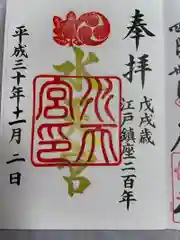 奉拝
戊戌歳
江戸鎮座二百年
水天宮
水天
宮印
平成三十年十一月二日